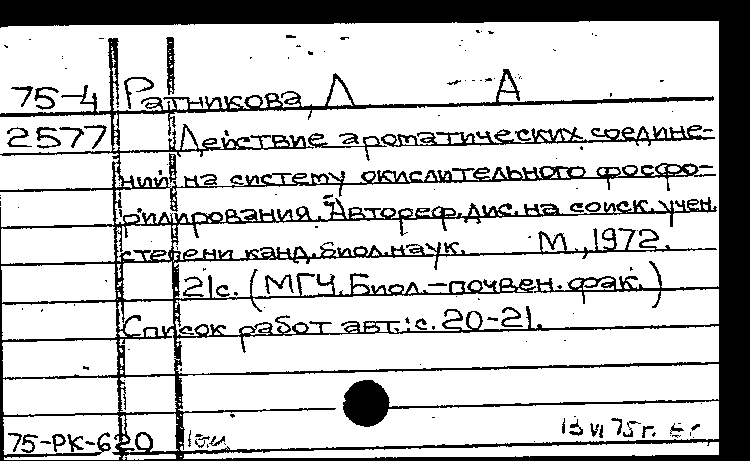 75-4 Ратникова, Л А
2577 Действие ароматических соедине-
ний на систему окислительного фосфо-
рилирования. Автореф. дис. на соиск. учен.
степени канд. биол. наук. М., 1972.
21с. (МГУ. Биол.-почвен. фак.)
Список работ авт.: с. 20-21.
75-РК-620 13 VI 75 г.